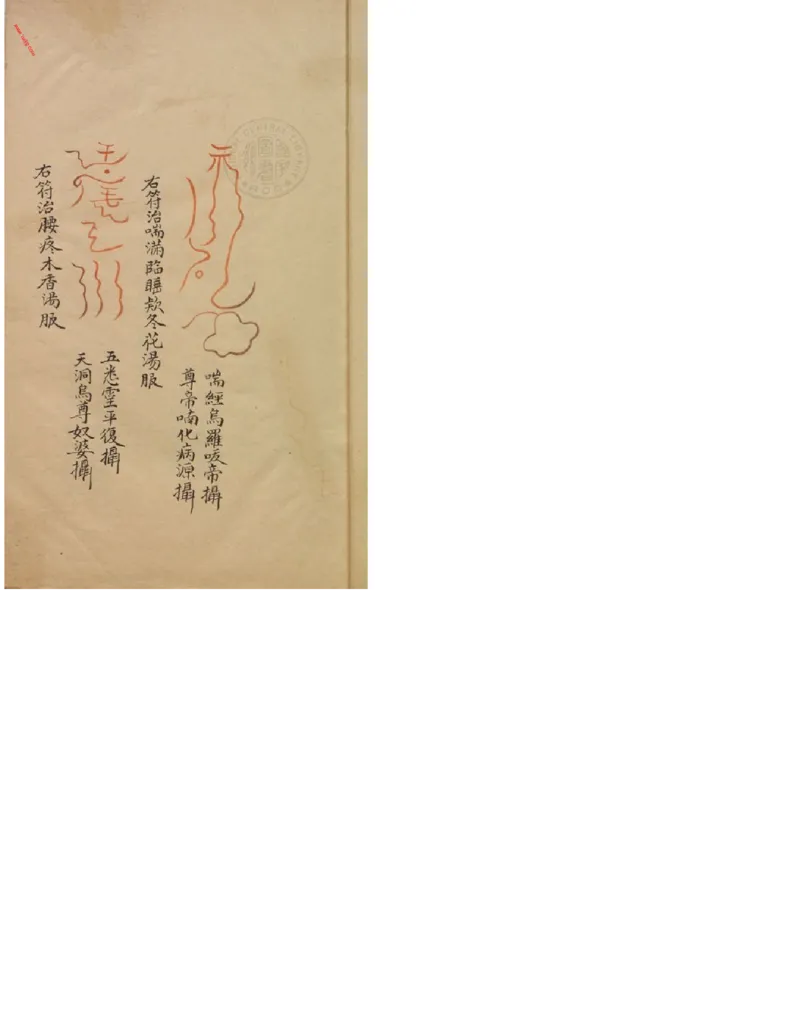 喘經烏羅唆帝攝
尊帝喃化病源攝
右符治喘滿臨睡欵冬花湯服
五悉靈平復攝
天洞烏尊奴婆攝
右符治腰疼木香湯服